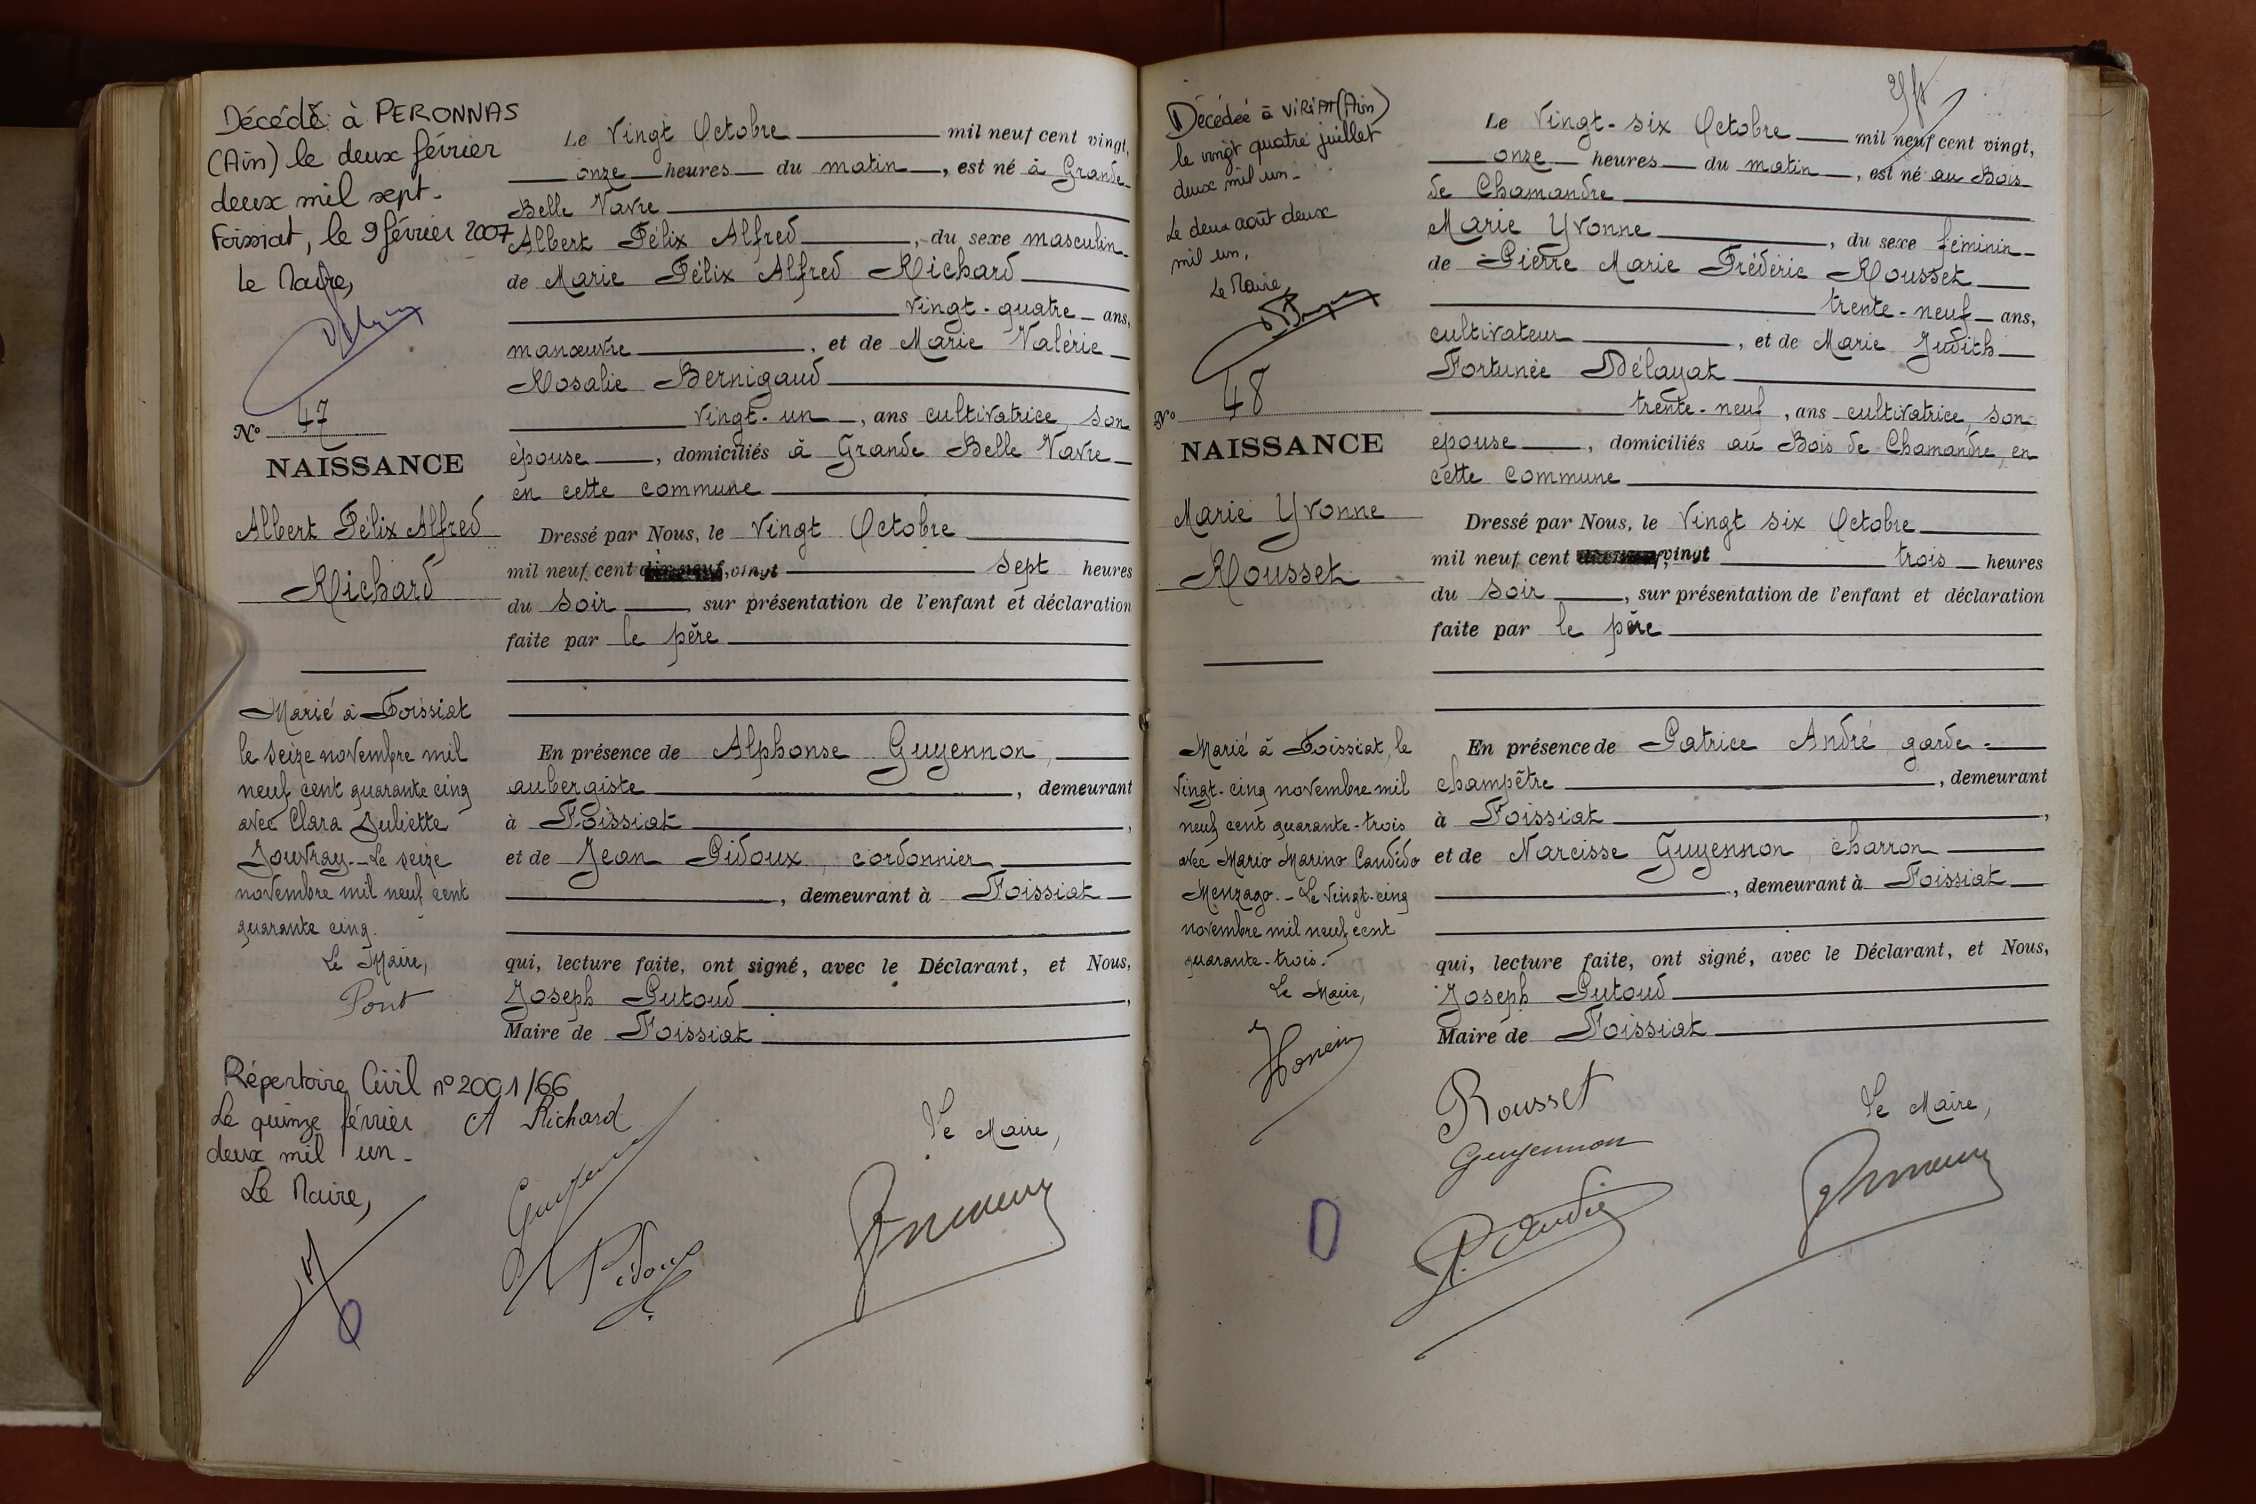 Décédé à PERONNAS
(Ain) le deux février
deux mil sept.
Foissiat, le 9 février 2007
Le Maire,
N° 47
NAISSANCE
Albert Félix Alfred
Richard
Marié à Foissiat
le seize novembre mil
neuf cent quarante cinq
avec Clara Juliette
Jouvray. - Le seize
novembre mil neuf cent
quarante cinq.
Le Maire,
Pont
Répertoire Civil n° 2001/66
Le quinze février
deux mil un -
Le Maire,
Le Vingt Octobre mil neuf cent vingt,
onze heures du matin, est né à Grande
Belle Vavre
Albert Félix Alfred, du sexe masculin
de Marie Félix Alfred Richard
vingt-quatre ans,
manœuvre, et de Marie Valérie
Rosalie Bernigaud
vingt-un, ans cultivatrice, son
épouse, domiciliés à Grande Belle Vavre
en cette commune
Dressé par Nous, le Vingt Octobre
mil neuf cent dix-neuf, vingt sept heures
du soir, sur présentation de l'enfant et déclaration
faite par le père
En présence de Alphonse Guyennon,
aubergiste, demeurant
à Foissiat,
et de Jean Pidoux, cordonnier
, demeurant à Foissiat
qui, lecture faite, ont signé, avec le Déclarant, et Nous,
Joseph Putoud,
Maire de Foissiat
A Richard
Le Maire,
Guyennon
Pidoux
Décédée à VIRIAT (Ain)
le vingt quatre juillet
deux mil un -
Le deux août deux
mil un,
Le Maire,
N° 48
NAISSANCE
Marie Yvonne
Rousset
Marié à Foissiat, le
vingt-cinq novembre mil
neuf cent quarante-trois
avec Mario Marino Candido
Menzago. - Le vingt-cinq
novembre mil neuf cent
quarante-trois.
Le Maire,
Le Vingt-six Octobre mil neuf cent vingt,
onze heures du matin, est né au Bois
de Chamandre
Marie Yvonne, du sexe féminin
de Pierre Marie Frédéric Rousset
trente-neuf ans,
cultivateur, et de Marie Judith
Fortunée Délayat
trente-neuf, ans cultivatrice, son
épouse, domiciliés au Bois de Chamandre, en
cette commune
Dressé par Nous, le Vingt six Octobre
mil neuf cent vingt trois heures
du soir, sur présentation de l'enfant et déclaration
faite par le père
En présence de Patrice André, garde-
champêtre, demeurant
à Foissiat,
et de Narcisse Guyennon, charron
, demeurant à Foissiat
qui, lecture faite, ont signé, avec le Déclarant, et Nous,
Joseph Putoud
Maire de Foissiat
Rousset
Le Maire,
Guyennon
P. André